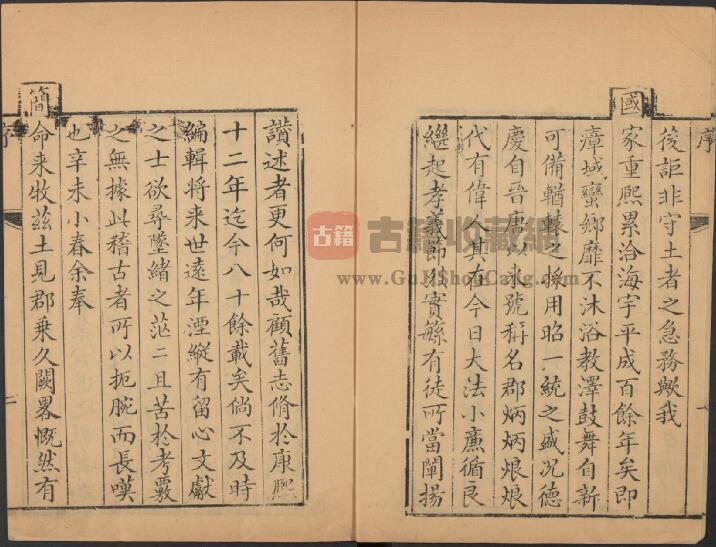 序
後詎非守土者之急務歟我
國家重熙累洽海宇平成百餘年矣即
瘴域蠻鄉靡不沐浴教澤鼓舞自新
可備輶轅之採用昭一統之盛况德
慶自晉唐以來號稱名郡炳炳烺烺
代有偉人其在今日大法小廉循良
繼起孝義節烈實緐有徒所當闡揚
讚述者更何如哉顧舊志脩於康熙
十二年迄今八十餘載矣倘不及時
編輯將来世遠年湮縱有留心文獻
之士欲尋墜緒之茫二且苦於考覈
之無據此稽古者所以扼腕而長嘆
也辛未小春余奉
簡命来牧茲土見郡乘久闕畧慨然有
序
古籍
古籍收藏網
www.GuJiShouCang.com